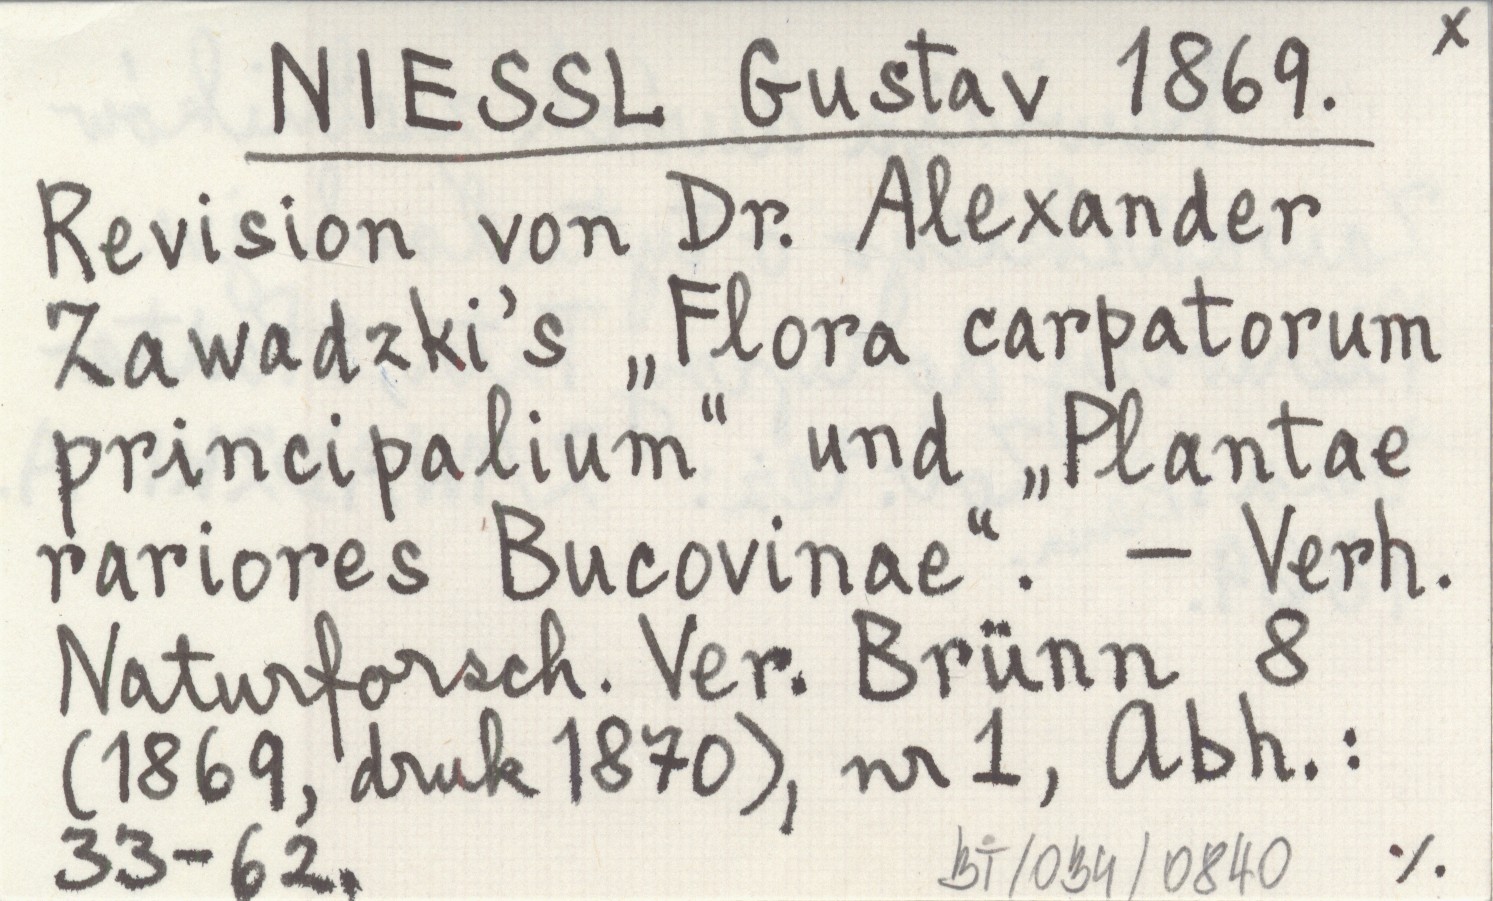 x
NIESSL Gustav 1869.
Revision von Dr. Alexander
Zawadzki's „Flora carpatorum
principalium“ und „Plantae
rariores Bucovinae“. – Verh.
Naturforsch. Ver. Brünn 8
(1869, druk 1870), nr 1, Abh.:
33-62.
BT/034/0840 ./.